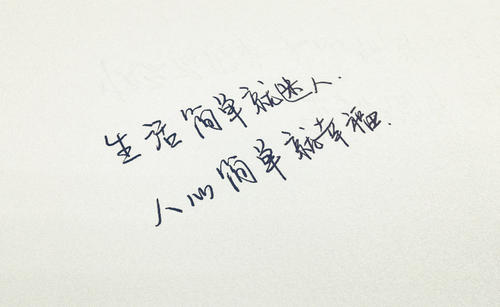 生活简单就迷人.
人心简单就幸福.